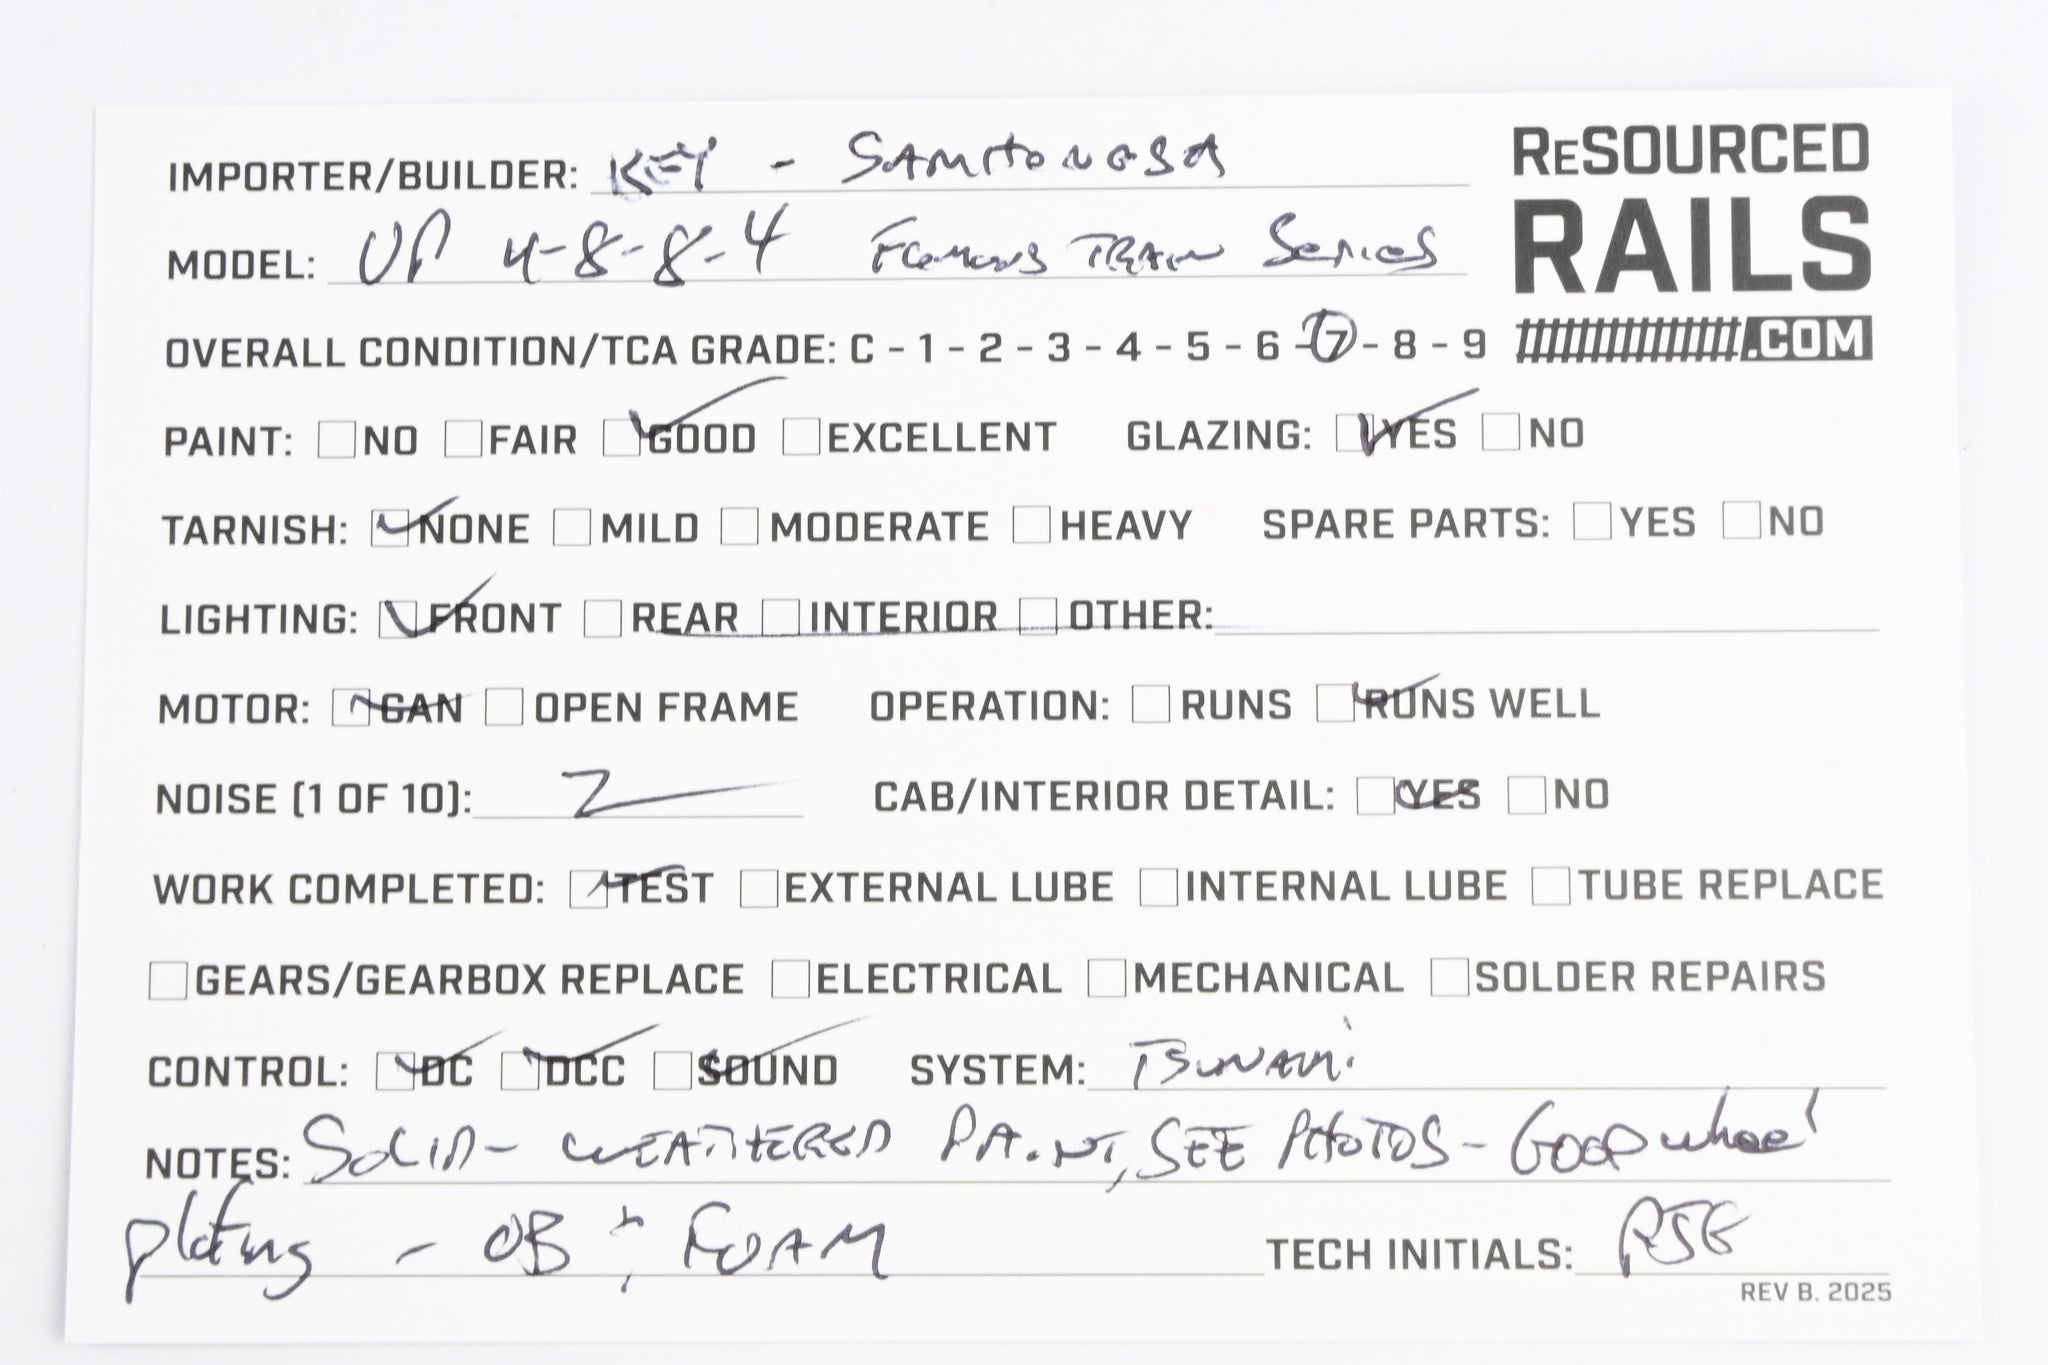 IMPORTER/BUILDER: KEY - SAMHONGSA
RESOURCED
RAILS
.COM
MODEL: UP 4-8-8-4 Famous TRAIN Series
OVERALL CONDITION/TCA GRADE: C - 1 - 2 - 3 - 4 - 5 - 6 - 7 - 8 - 9
PAINT: NO FAIR GOOD EXCELLENT GLAZING: YES NO
TARNISH: NONE MILD MODERATE HEAVY SPARE PARTS: YES NO
LIGHTING: FRONT REAR INTERIOR OTHER:
MOTOR: CAN OPEN FRAME OPERATION: RUNS RUNS WELL
NOISE (1 OF 10): 2 CAB/INTERIOR DETAIL: YES NO
WORK COMPLETED: TEST EXTERNAL LUBE INTERNAL LUBE TUBE REPLACE
GEARS/GEARBOX REPLACE ELECTRICAL MECHANICAL SOLDER REPAIRS
CONTROL: DC DCC SOUND SYSTEM: TSUNAMi
NOTES: SOLID - WEATHERED PAiNT, SEE PHOTOS - GOOD wheel
plating - OB + FOAM TECH INITIALS:
REV B. 2025